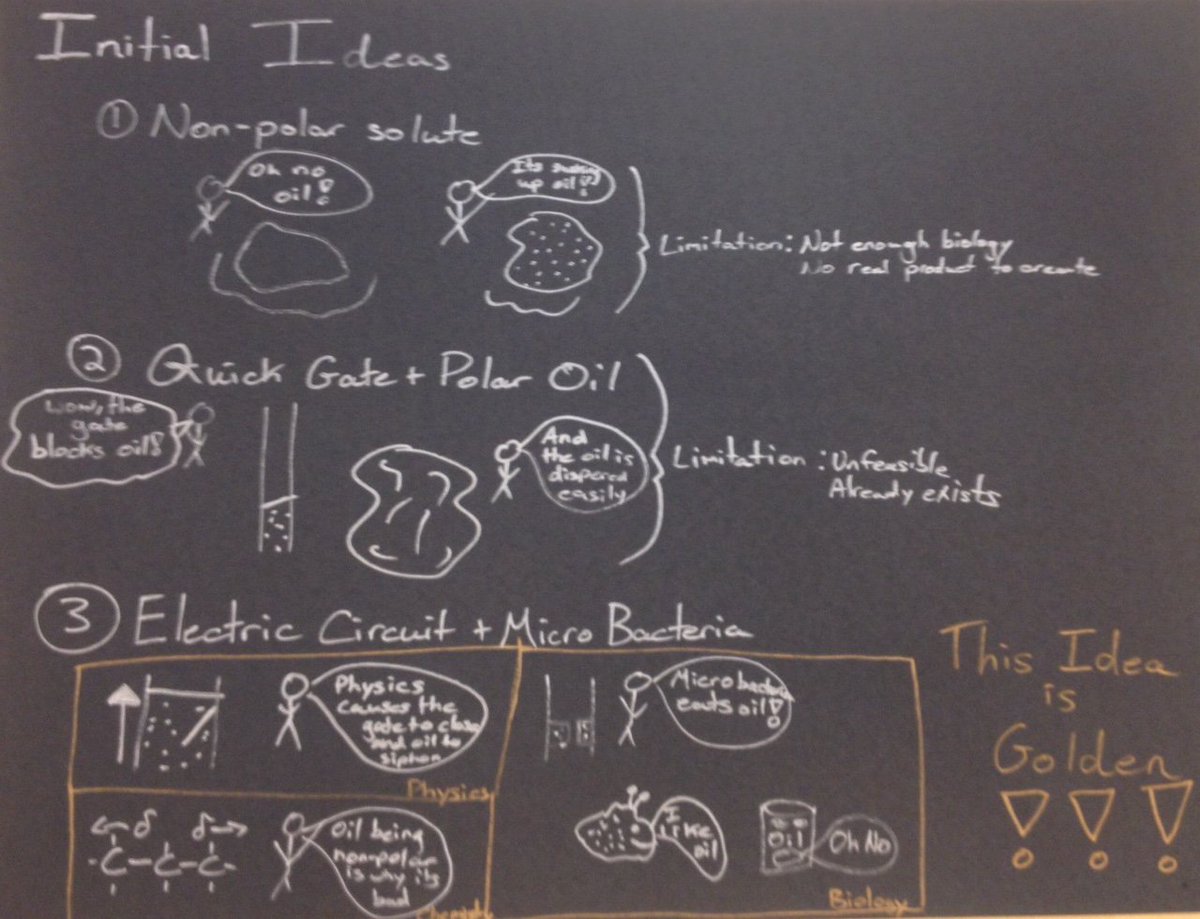 Initial Ideas
① Non-polar solute
Oh no
oil!
Its
up oil!
Limitation: Not enough biology
No real product to create
② Quick Gate + Polar Oil
Wow, the
gate
blocks oil!
And
the oil is
dispered
easily
Limitation: Unfeasible
Already exists
③ Electric Circuit + Micro Bacteria
Physics
causes the
gate to close
and oil to
siphon
Physics
Micro bacteria
eats oil!
This Idea
is
Golden
!!!
δ δ
-C-C-C-
Oil being
non-polar
is why its
bad
I
like
oil
Oil
Oh No
Biology